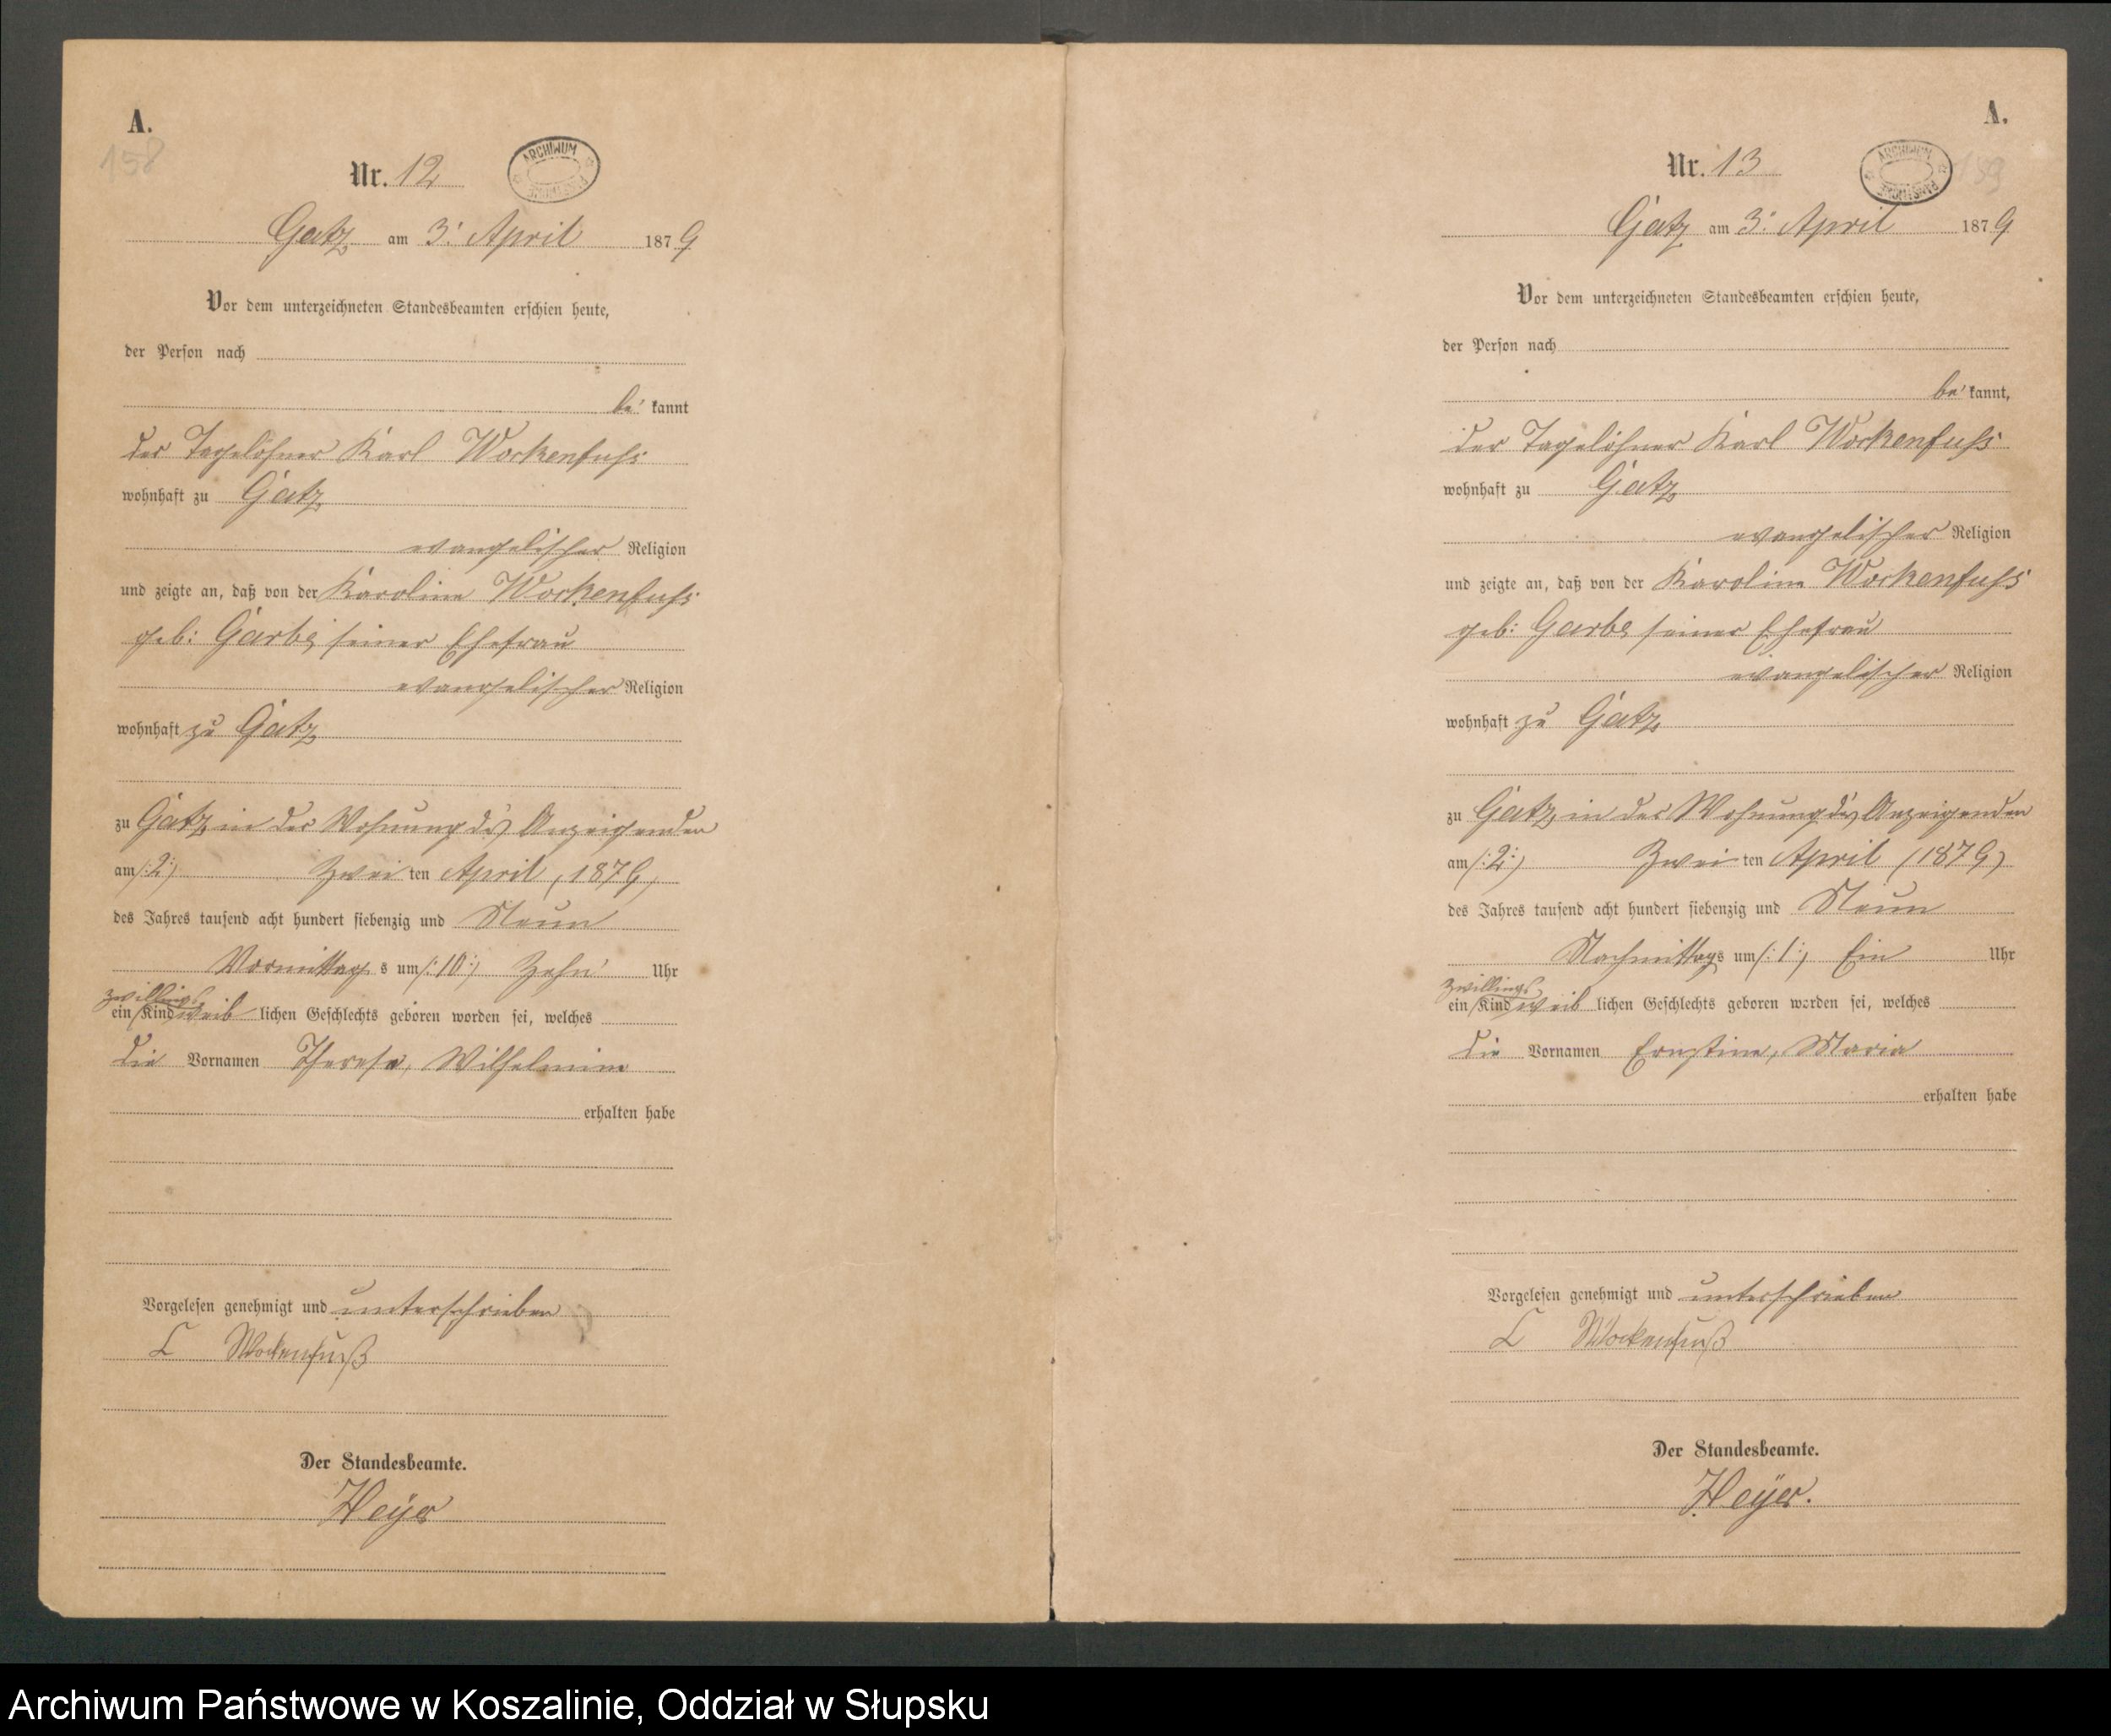 A.
158
Nr. 12
ARCHIWUM PAŃSTWOWE
Gatz am 3. April 1879
Vor dem unterzeichneten Standesbeamten erschien heute,
der Person nach
be kannt
der Tagelöhner Karl Wockenfuss
wohnhaft zu Gatz
evangelischer Religion
und zeigte an, daß von der Karoline Wockenfuss
geb: Garbe, seiner Ehefrau
evangelischer Religion
wohnhaft zu Gatz
zu Gatz in der Wohnung des Anzeigenden
am /:2:/ Zwei ten April (1879)
des Jahres tausend acht hundert siebenzig und Neun
Vormittag s um /:10:/ Zehn Uhr
Zwillings
ein Kind weib lichen Geschlechts geboren worden sei, welches
die Vornamen Therese, Wilhelmine
erhalten habe
Vorgelesen genehmigt und unterschrieben
C Wockenfuß
Der Standesbeamte.
Heyer
A.
159
Nr. 13
ARCHIWUM PAŃSTWOWE
Gatz am 3. April 1879
Vor dem unterzeichneten Standesbeamten erschien heute,
der Person nach
be kannt,
der Tagelöhner Karl Wockenfuss
wohnhaft zu Gatz
evangelischer Religion
und zeigte an, daß von der Karoline Wockenfuss
geb: Garbe, seiner Ehefrau
evangelischer Religion
wohnhaft zu Gatz
zu Gatz, in der Wohnung des Anzeigenden
am /:2:/ Zwei ten April (1879)
des Jahres tausend acht hundert siebenzig und Neun
Nachmittags um /:1:/ Ein Uhr
Zwillings
ein Kind weib lichen Geschlechts geboren worden sei, welches
die Vornamen Ernstine, Maria
erhalten habe
Vorgelesen genehmigt und unterschrieben
C Wockenfuß
Der Standesbeamte.
Heyer.
Archiwum Państwowe w Koszalinie, Oddział w Słupsku